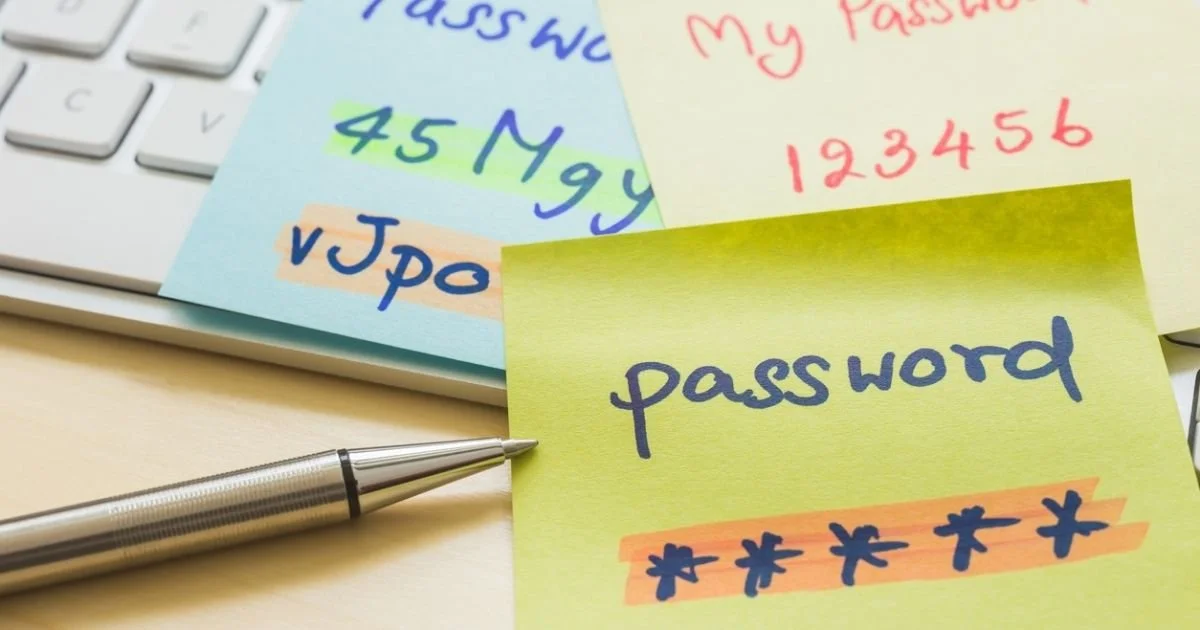 D F
C V
Passwo
45 Mgy
vJpo
My Passwor
123456
password
*****